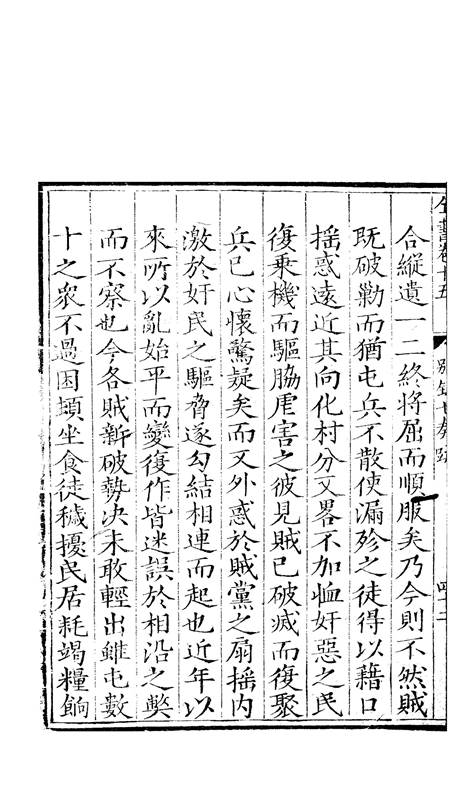 全書卷十五 別錄七奏疏 四十二
合縱遺一二終將屈而順服矣乃今則不然賊
既破勦而猶屯兵不散使漏殄之徒得以藉口
揺惑遠近其向化村分又畧不加恤奸惡之民
復乗機而驅脇虐害之彼見賊已破滅而復聚
兵已心懷驚疑矣而又外惑於賊黨之扇揺内
激於奸民之驅脅遂勾結相連而起也近年以
來所以亂始平而變復作皆迷誤於相沿之弊
而不察也今各賊新破勢决未敢輕出雖屯數
十之衆不過困頓坐食徒穢擾民居耗竭糧餉